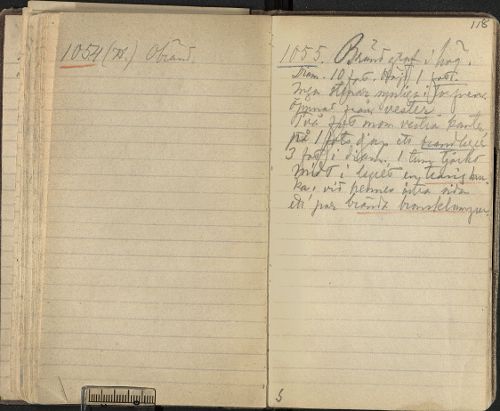 1054 (N.) Obränd.
118
1055. Bränd graf i hög.
Diam. 10 fot. Höjd 1 fot.
Inga stenar synliga i
öppnad från vester.
Två fot inom vestra kanten
på 1 fots djup ett brandlager
3 fot i diam. 1 tum tjockt
Midt i lagret en trasig kru-
ka, vid hennes östra sida
ett par brända bronsklumpar.
5